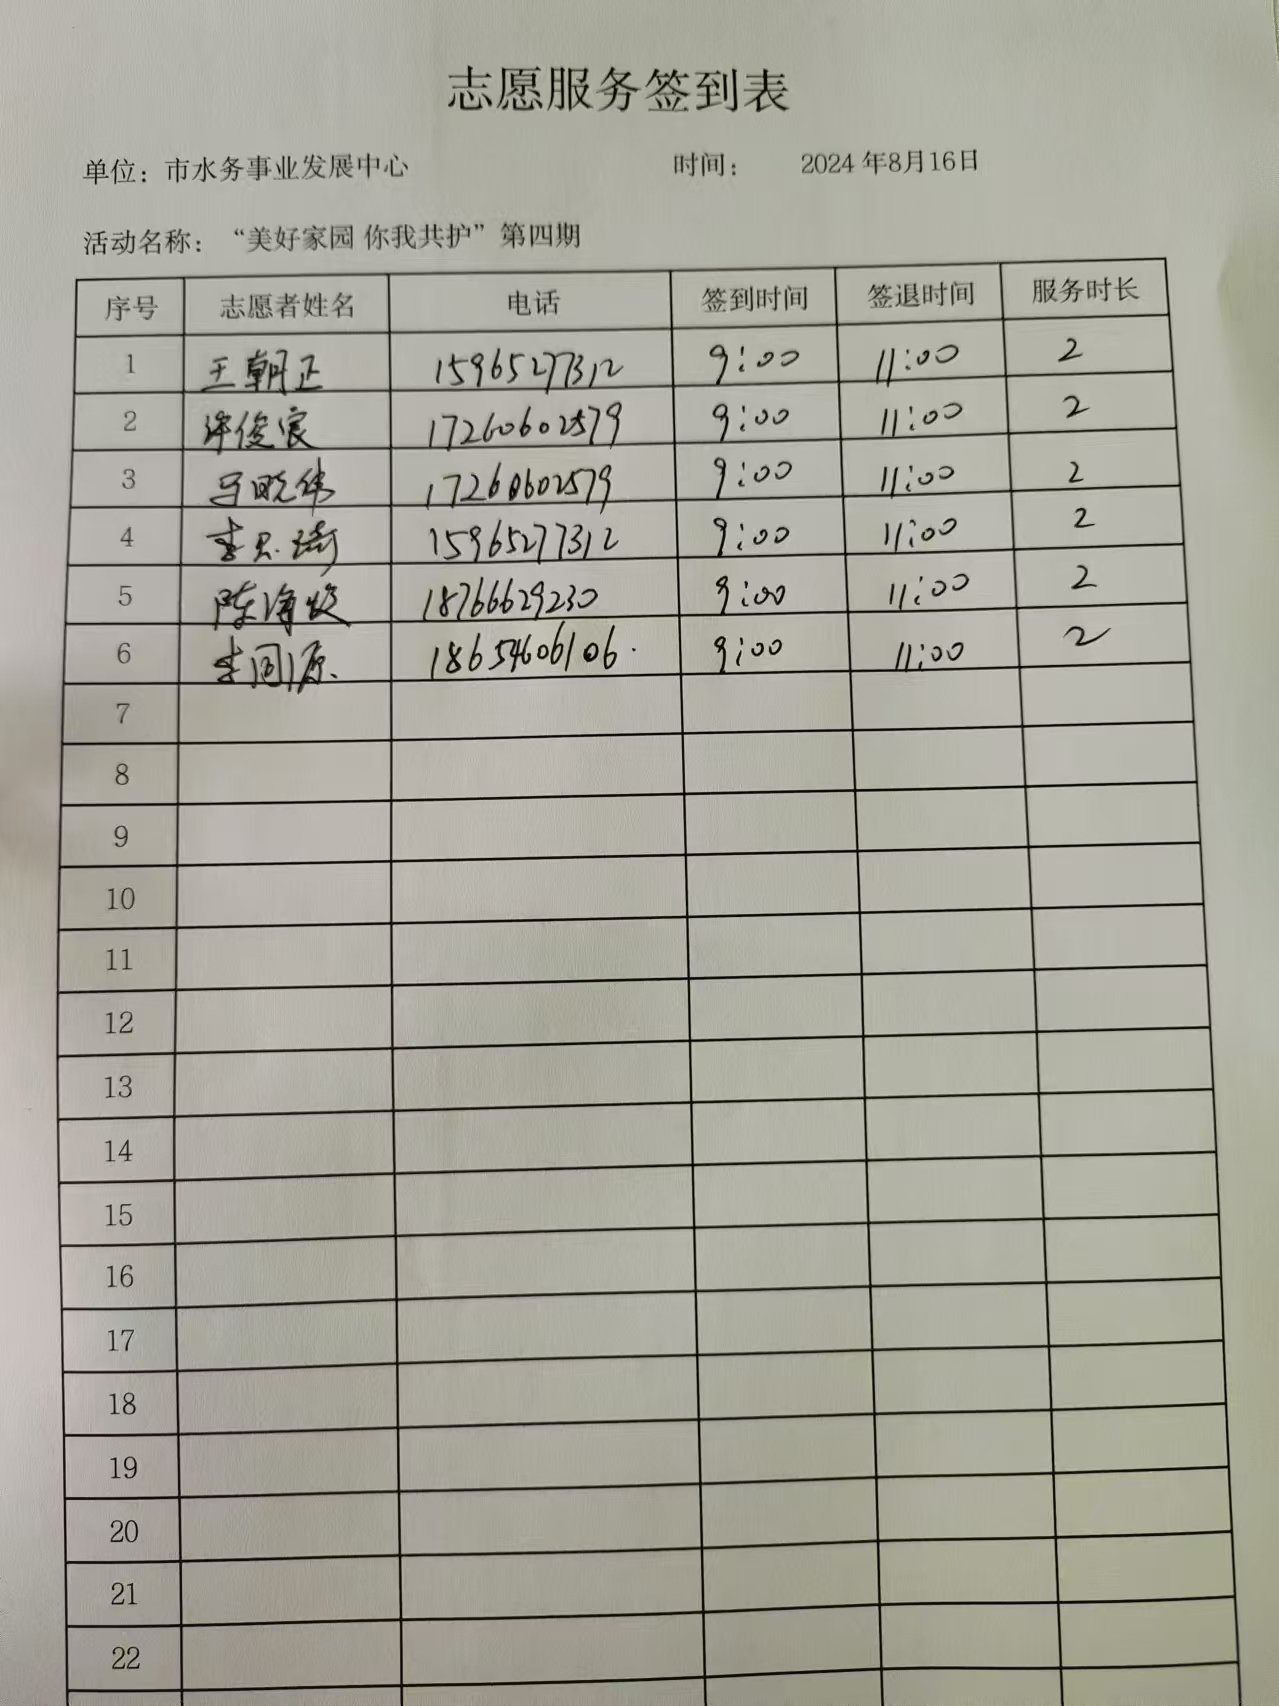 志愿服务签到表
单位：市水务事业发展中心 时间： 2024年8月16日
活动名称：“美好家园 你我共护”第四期
序号 志愿者姓名 电话 签到时间 签退时间 服务时长
1 王朝正 15965277312 9:00 11:00 2
2 许俊宸 17260602579 9:00 11:00 2
3 马晓伟 17260602579 9:00 11:00 2
4 李思琦 15965277312 9:00 11:00 2
5 陈 18766629230 9:00 11:00 2
6 李同源 18654606106. 9:00 11:00 2
7
8
9
10
11
12
13
14
15
16
17
18
19
20
21
22